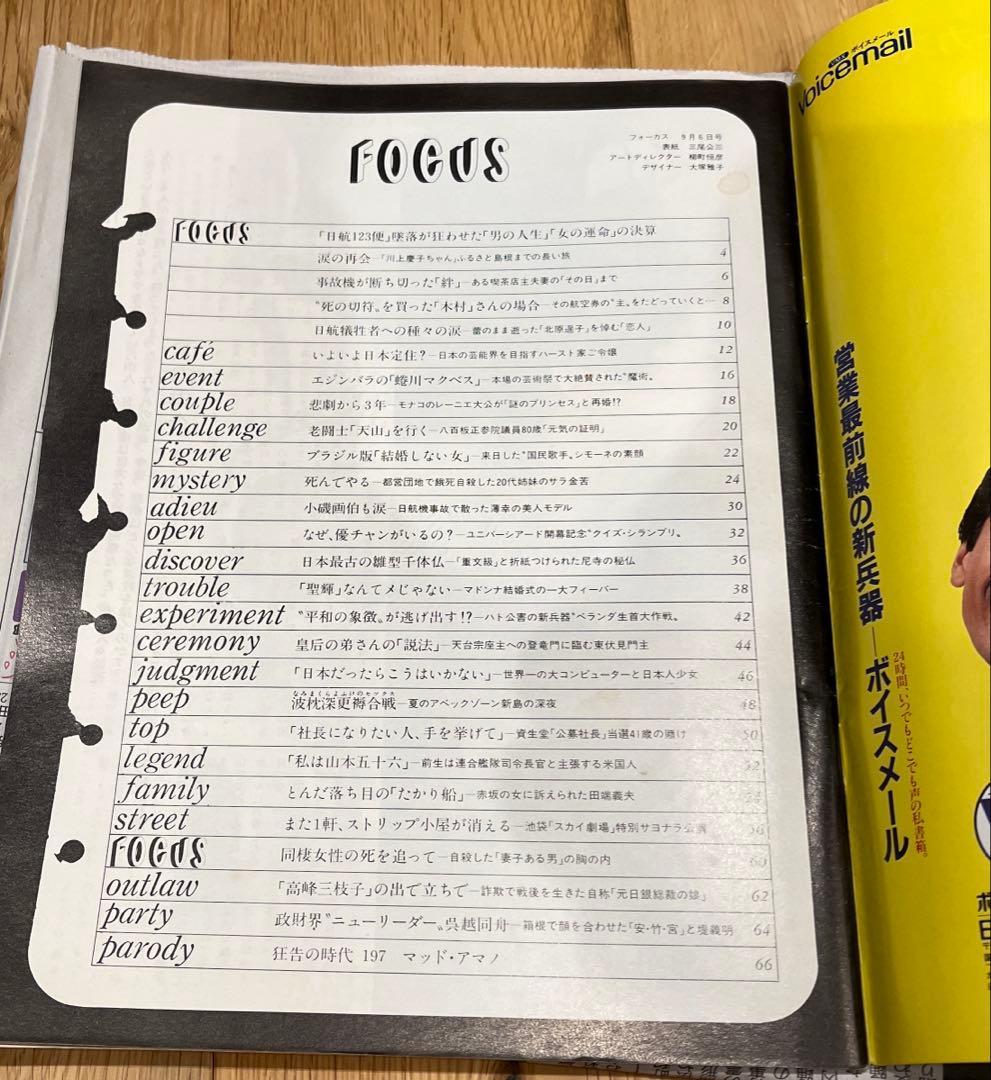 FOCUS
フォーカス 9月6日号
表紙 三尾公三
アートディレクター 柳町恒彦
デザイナー 大塚雅子
FOCUS 「日航123便」墜落が狂わせた「男の人生」「女の運命」の決算
涙の再会―「川上慶子ちゃん」ふるさと島根までの長い旅 4
事故機が断ち切った「絆」―ある喫茶店主夫妻の「その日」まで 6
〝死の切符〟を買った「木村」さんの場合―その航空券の〝主〟をたどっていくと… 8
日航犠牲者への種々の涙―蕾のまま逝った「北原遥子」を悼む「恋人」 10
café いよいよ日本定住?―日本の芸能界を目指すハースト家ご令嬢 12
event エジンバラの「蜷川マクベス」―本場の芸術祭で大絶賛された〝魔術〟 16
couple 悲劇から3年―モナコのレーニエ大公が「謎のプリンセス」と再婚!? 18
challenge 老闘士「天山」を行く―八百板正参院議員80歳「元気の証明」 20
figure ブラジル版「結婚しない女」―来日した〝国民歌手〟シモーネの素顔 22
mystery 死んでやる―都営団地で餓死自殺した20代姉妹のサラ金苦 24
adieu 小磯画伯も涙―日航機事故で散った薄幸の美人モデル 30
open なぜ、優チャンがいるの?―ユニバーシアード開幕記念〝クイズ・シランプリ〟 32
discover 日本最古の雛型千体仏―「重文級」と折紙つけられた尼寺の秘仏 36
trouble 「聖輝」なんてメじゃない―マドンナ結婚式の一大フィーバー 38
experiment 〝平和の象徴〟が逃げ出す!?―ハト公害の新兵器〝ベランダ生首大作戦〟 42
ceremony 皇后の弟さんの「説法」―天台宗座主への登竜門に臨む東伏見門主 44
judgment 「日本だったらこうはいかない」―世界一の大コンピューターと日本人少女 46
peep 波枕深更褥合戦―夏のアベックゾーン新島の深夜 48
top 「社長になりたい人、手を挙げて」―資生堂「公募社長」当選41歳の賭け 50
legend 「私は山本五十六」―前生は連合艦隊司令長官と主張する米国人 52
family とんだ落ち目の「たかり船」―赤坂の女に訴えられた田端義夫
street また1軒、ストリップ小屋が消える―池袋「スカイ劇場」特別サヨナラ公演 56
FOCUS 同棲女性の死を追って―自殺した「妻子ある男」の胸の内 60
outlaw 「高峰三枝子」の出で立ちで―詐欺で戦後を生きた自称「元日銀総裁の娘」 62
party 政財界〝ニューリーダー〟呉越同舟―箱根で顔を合わせた「安・竹・宮」と堤義明 64
parody 狂告の時代 197 マッド・アマノ 66
ボイスメール
Voicemail
営業最前線の新兵器―ボイスメール
24時間、いつでもどこでも声の私書箱。